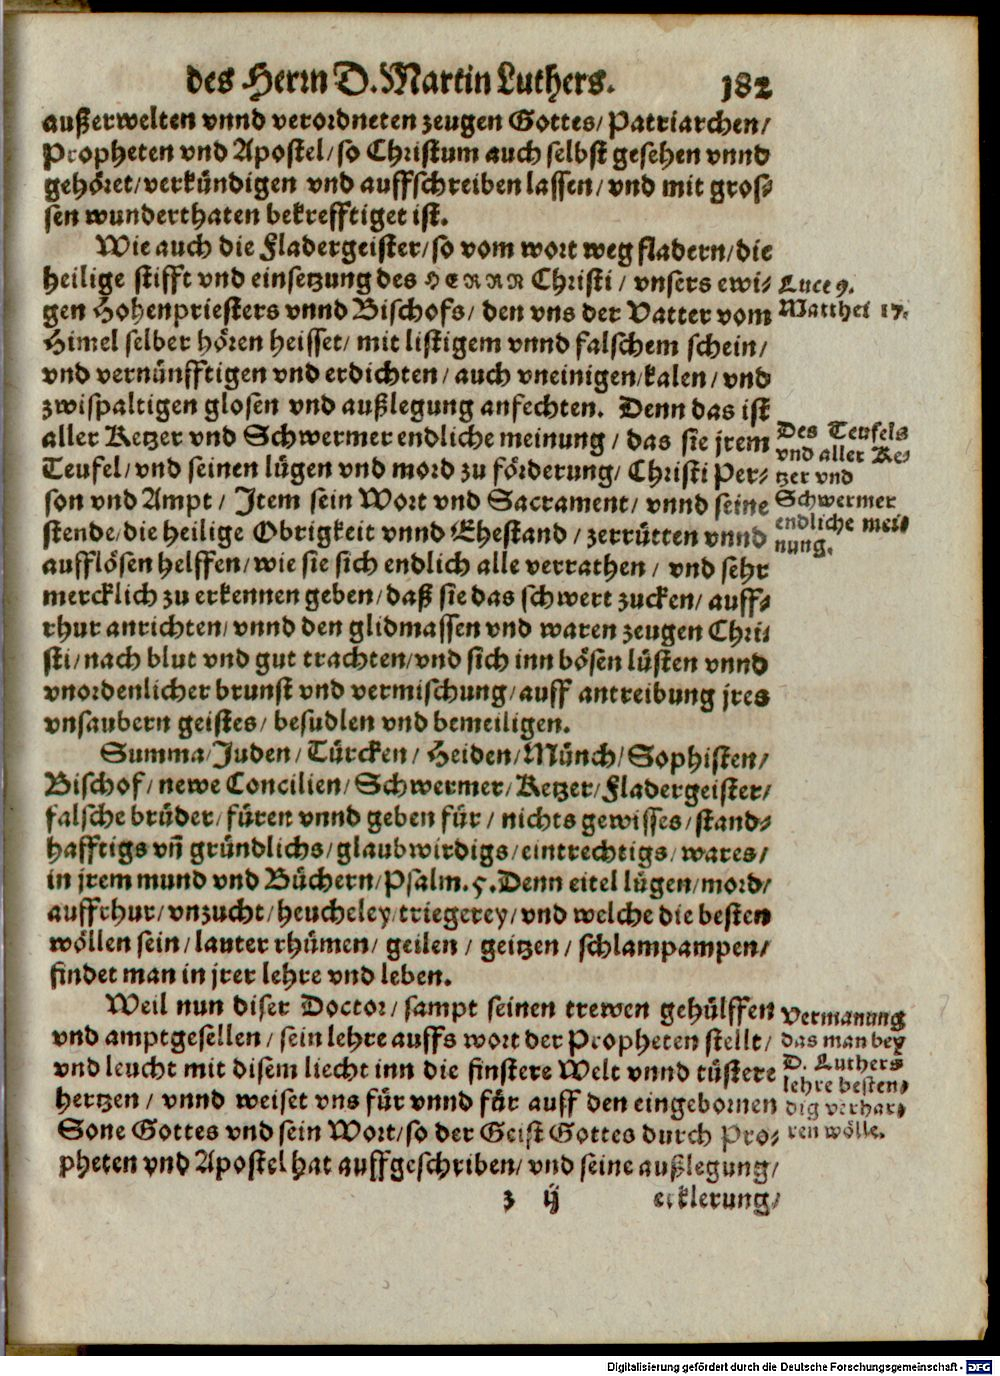 des Herrn D. Martin Luthers. 182
außerwelten vnnd verordneten zeugen Gottes/ Patriarchen/
Propheten vnd Apostel/ so Christum auch selbst gesehen vnnd
gehöret/ verkündigen vnd auffschreiben lassen/ vnd mit gros-
sen wunderthaten bekrefftiget ist.
Wie auch die Fladergeister/ so vom wort weg fladern/ die
heilige stifft vnd einsetzung des HERRN Christi / vnsers ewi-
gen Hohenpriesters vnnd Bischofs/ den vns der Vatter vom
Himel selber hören heisset/ mit listigem vnnd falschem schein/
vnd vernünfftigen vnd erdichten/ auch vneinigen/ kalen/ vnd
zwispaltigen glosen vnd außlegung anfechten. Denn das ist
aller Ketzer vnd Schwermer endliche meinung / das sie jrem
Teufel/ vnd seinen lügen vnd mord zu förderung/ Christi Per-
son vnd Ampt / Item sein Wort vnd Sacrament/ vnnd seine
stende/ die heilige Obrigkeit vnnd Ehestand / zerrütten vnnd
aufflösen helffen/ wie sie sich endlich alle verrathen / vnd sehr
mercklich zu erkennen geben/ daß sie das schwert zucken/ auff-
rhur anrichten/ vnnd den glidmassen vnd waren zeugen Chri-
sti/ nach blut vnd gut trachten/ vnd sich inn bösen lüsten vnnd
vnordenlicher brunst vnd vermischung/ auff antreibung jres
vnsaubern geistes/ besudlen vnd bemeiligen.
Luce 9.
Matthei 17.
Des Teufels
vnd aller Ke-
tzer vnd
Schwermer
endliche mei-
nung.
Summa/ Juden/ Türcken/ Heiden/ Münch/ Sophisten/
Bischof/ newe Concilien/ Schwermer/ Ketzer/ Fladergeister/
falsche brüder/ füren vnnd geben für/ nichts gewisses/ stand-
hafftigs vñ gründlichs/ glaubwirdigs/ eintrechtigs/ wares/
in jrem mund vnd Büchern/ Psalm. 5. Denn eitel lügen/ mord/
auffrhur/ vnzucht/ heucheley/ triegerey/ vnd welche die besten
wöllen sein/ lauter rhümen/ geilen / geitzen/ schlampampen/
findet man in jrer lehre vnd leben.
Weil nun diser Doctor/ sampt seinen trewen gehülffen
vnd amptgesellen/ sein lehre auffs wort der Propheten stellt/
vnd leucht mit disem liecht inn die finstere Welt vnnd tüstere
hertzen/ vnnd weiset vns für vnnd für auff den eingebornen
Sone Gottes vnd sein Wort/ so der Geist Gottes durch Pro-
pheten vnd Apostel hat auffgeschriben/ vnd seine außlegung/
Vermanung
das man bey
D. Luthers
lehre besten-
dig verhar-
ren wölle.
z ij erklerung/
Digitalisierung gefördert durch die Deutsche Forschungsgemeinschaft - DFG